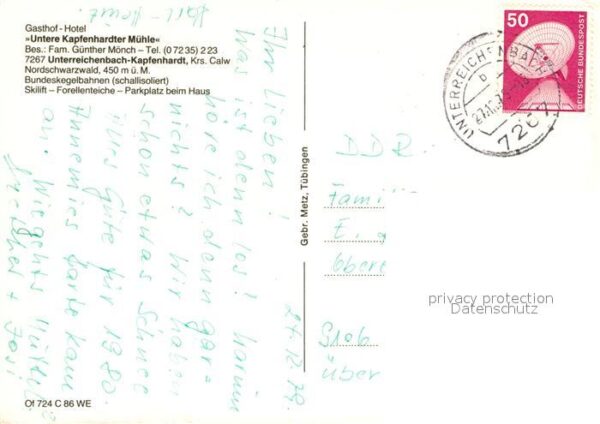 Gasthof - Hotel
»Untere Kapfenhardter Mühle«
Bes.: Fam. Günther Mönch – Tel. (0 72 35) 2 23
7267 Unterreichenbach-Kapfenhardt, Krs. Calw
Nordschwarzwald, 450 m ü. M.
Bundeskegelbahnen (schallisoliert)
Skilift – Forellenteiche – Parkplatz beim Haus
27.12.79.
Ihr Lieben!
Was ist denn los? Warum
höre ich denn gar-
nichts? Wir haben
schon etwas Schnee
Alles Gute für 1980.
Annemies Karte kam
an. Wie gehts
Gebr. Metz, Tübingen
50
DEUTSCHE BUNDESPOST
UNTERREICHENBACH
b
7267
DDR
Famili
E.
Obere
über
privacy protection
Datenschutz
Of 724 C 86 WE